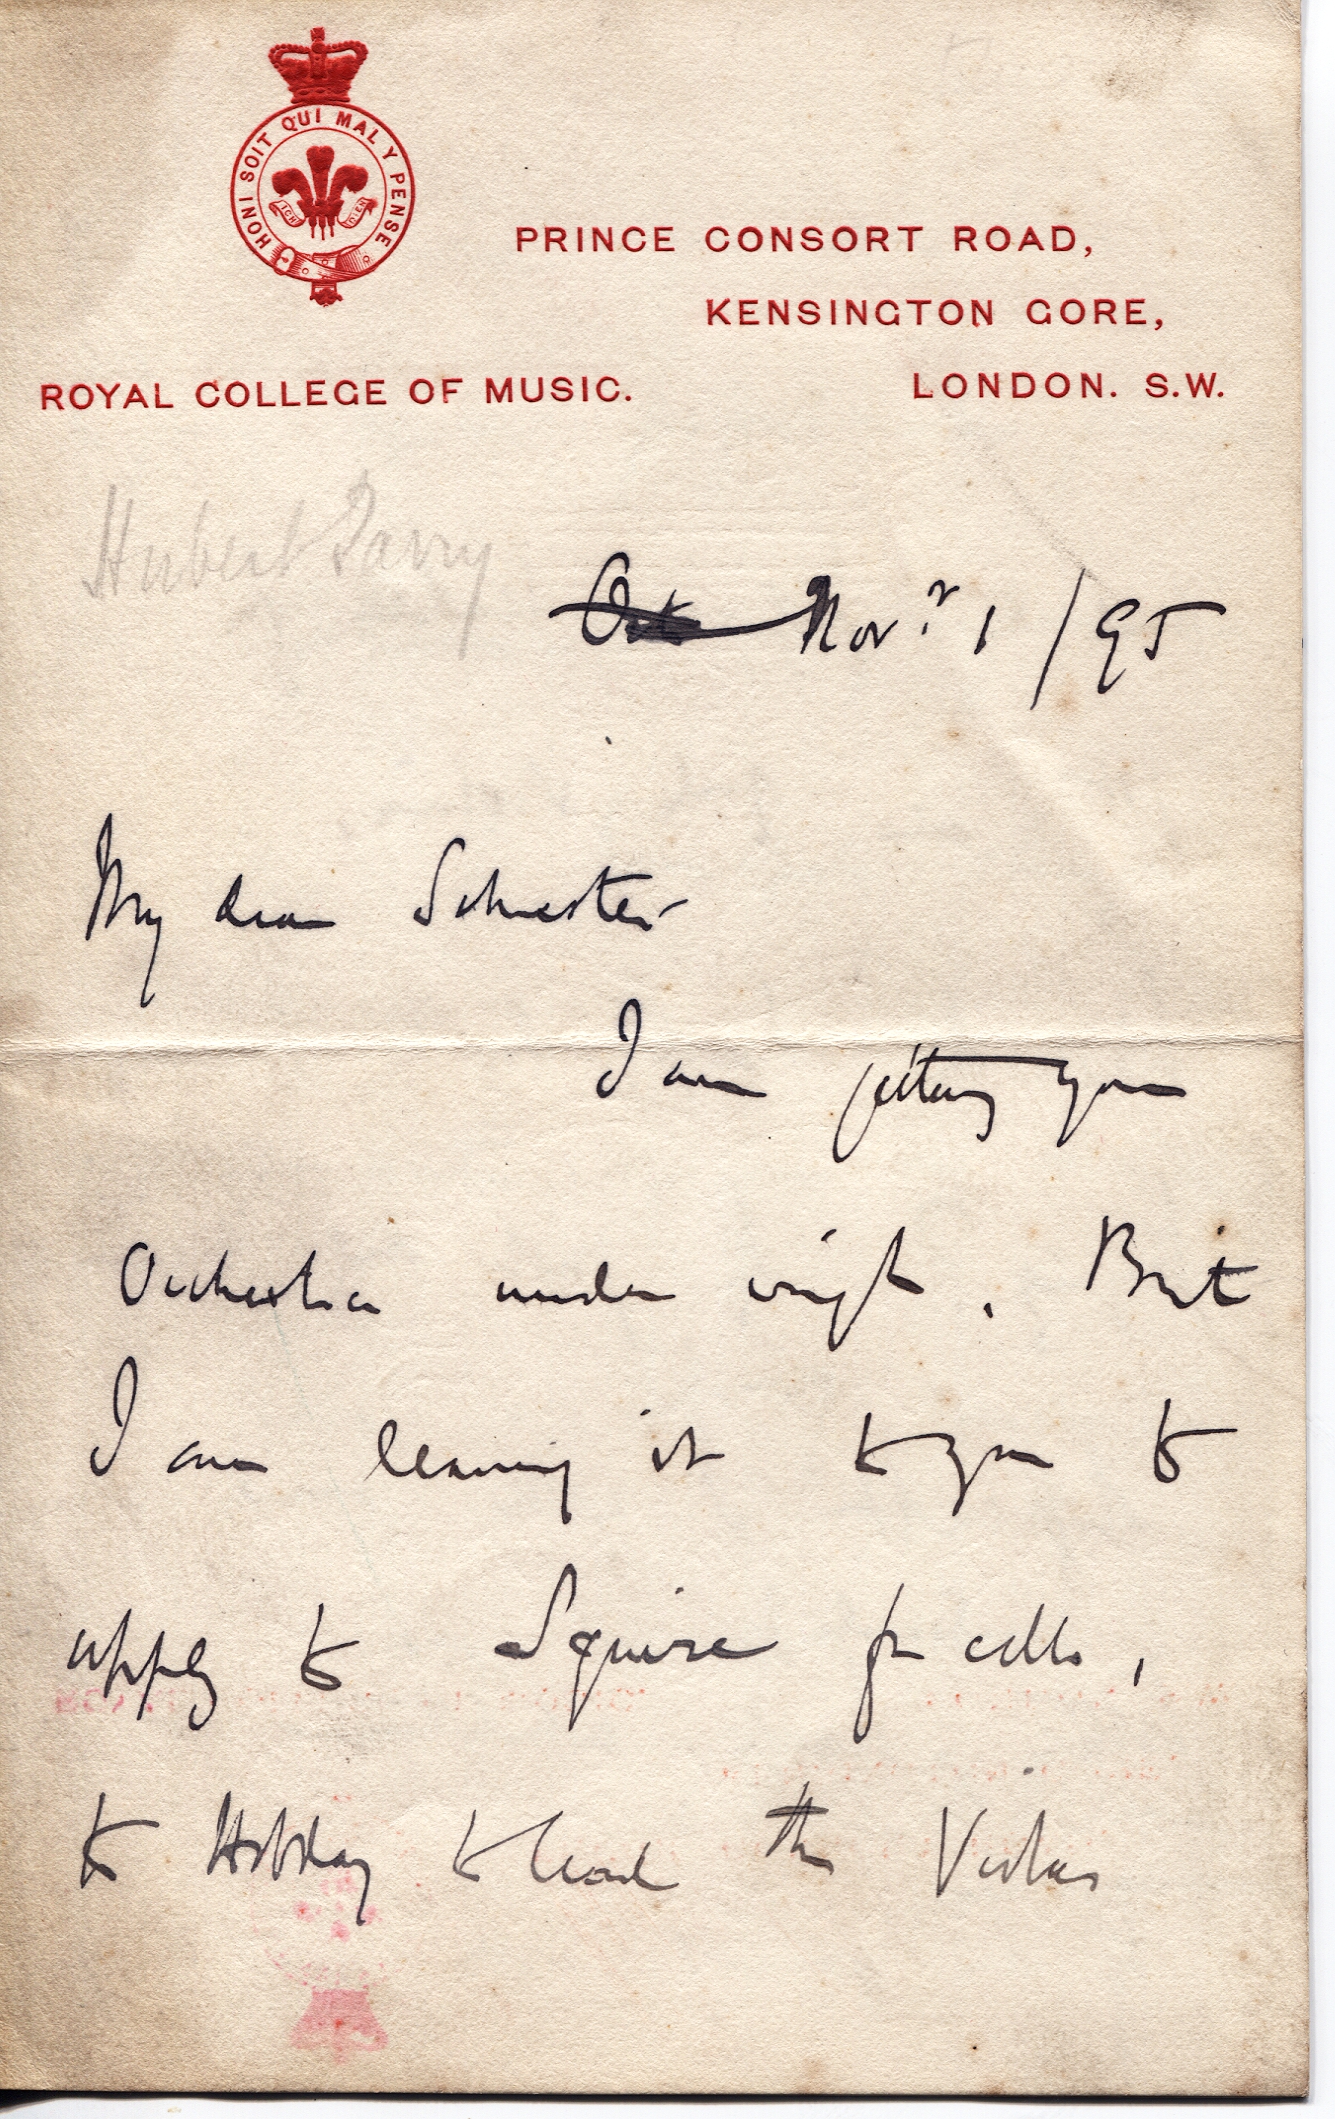 HONI SOIT QUI MAL Y PENSE
ICH DIEN
PRINCE CONSORT ROAD,
KENSINGTON GORE,
ROYAL COLLEGE OF MUSIC.
LONDON. S.W.
Hubert Parry
Oct Novr 1/95
My dear Schuester
I am getting your
Orchestra under weigh. But
I am leaving it to you to
apply to Squire for cello,
to Hobday to lead the Violas